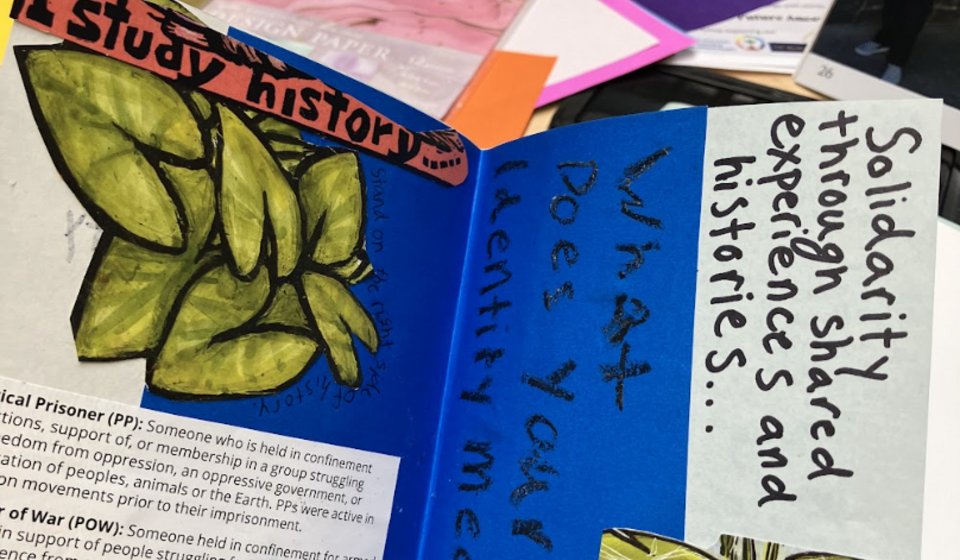 I study history....
stand on the right side
of history.
ical Prisoner (PP): Someone who is held in confinement
tions, support of, or membership in a group struggling
edom from oppression, an oppressive government, or
ation of peoples, animals or the Earth. PPs were active in
on movements prior to their imprisonment.
r of War (POW): Someone held in confinement for armed
in support of people struggling
What
Does Your
Identity
Solidarity
through shared
experiences and
histories...
SIGN PAPER
26